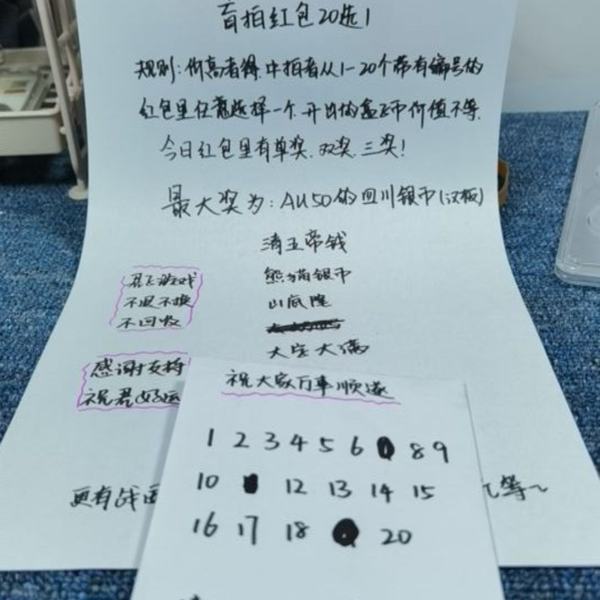 盲拍红包20选1
规则:价高者得.中拍者从1-20个带有编号的
红包里任意选择一个.开出的盒子币价值不等.
今日红包里有单奖.双奖.三奖!
最大奖为:AU50的四川银币(汉板)
清五帝钱
熊猫银币
山底隆
大宝大满
君子游戏
不退不换
不回收
感谢支持
祝君好运
更有战
等~
祝大家万事顺遂
1 2 3 4 5 6 8 9
10 12 13 14 15
16 17 18 20